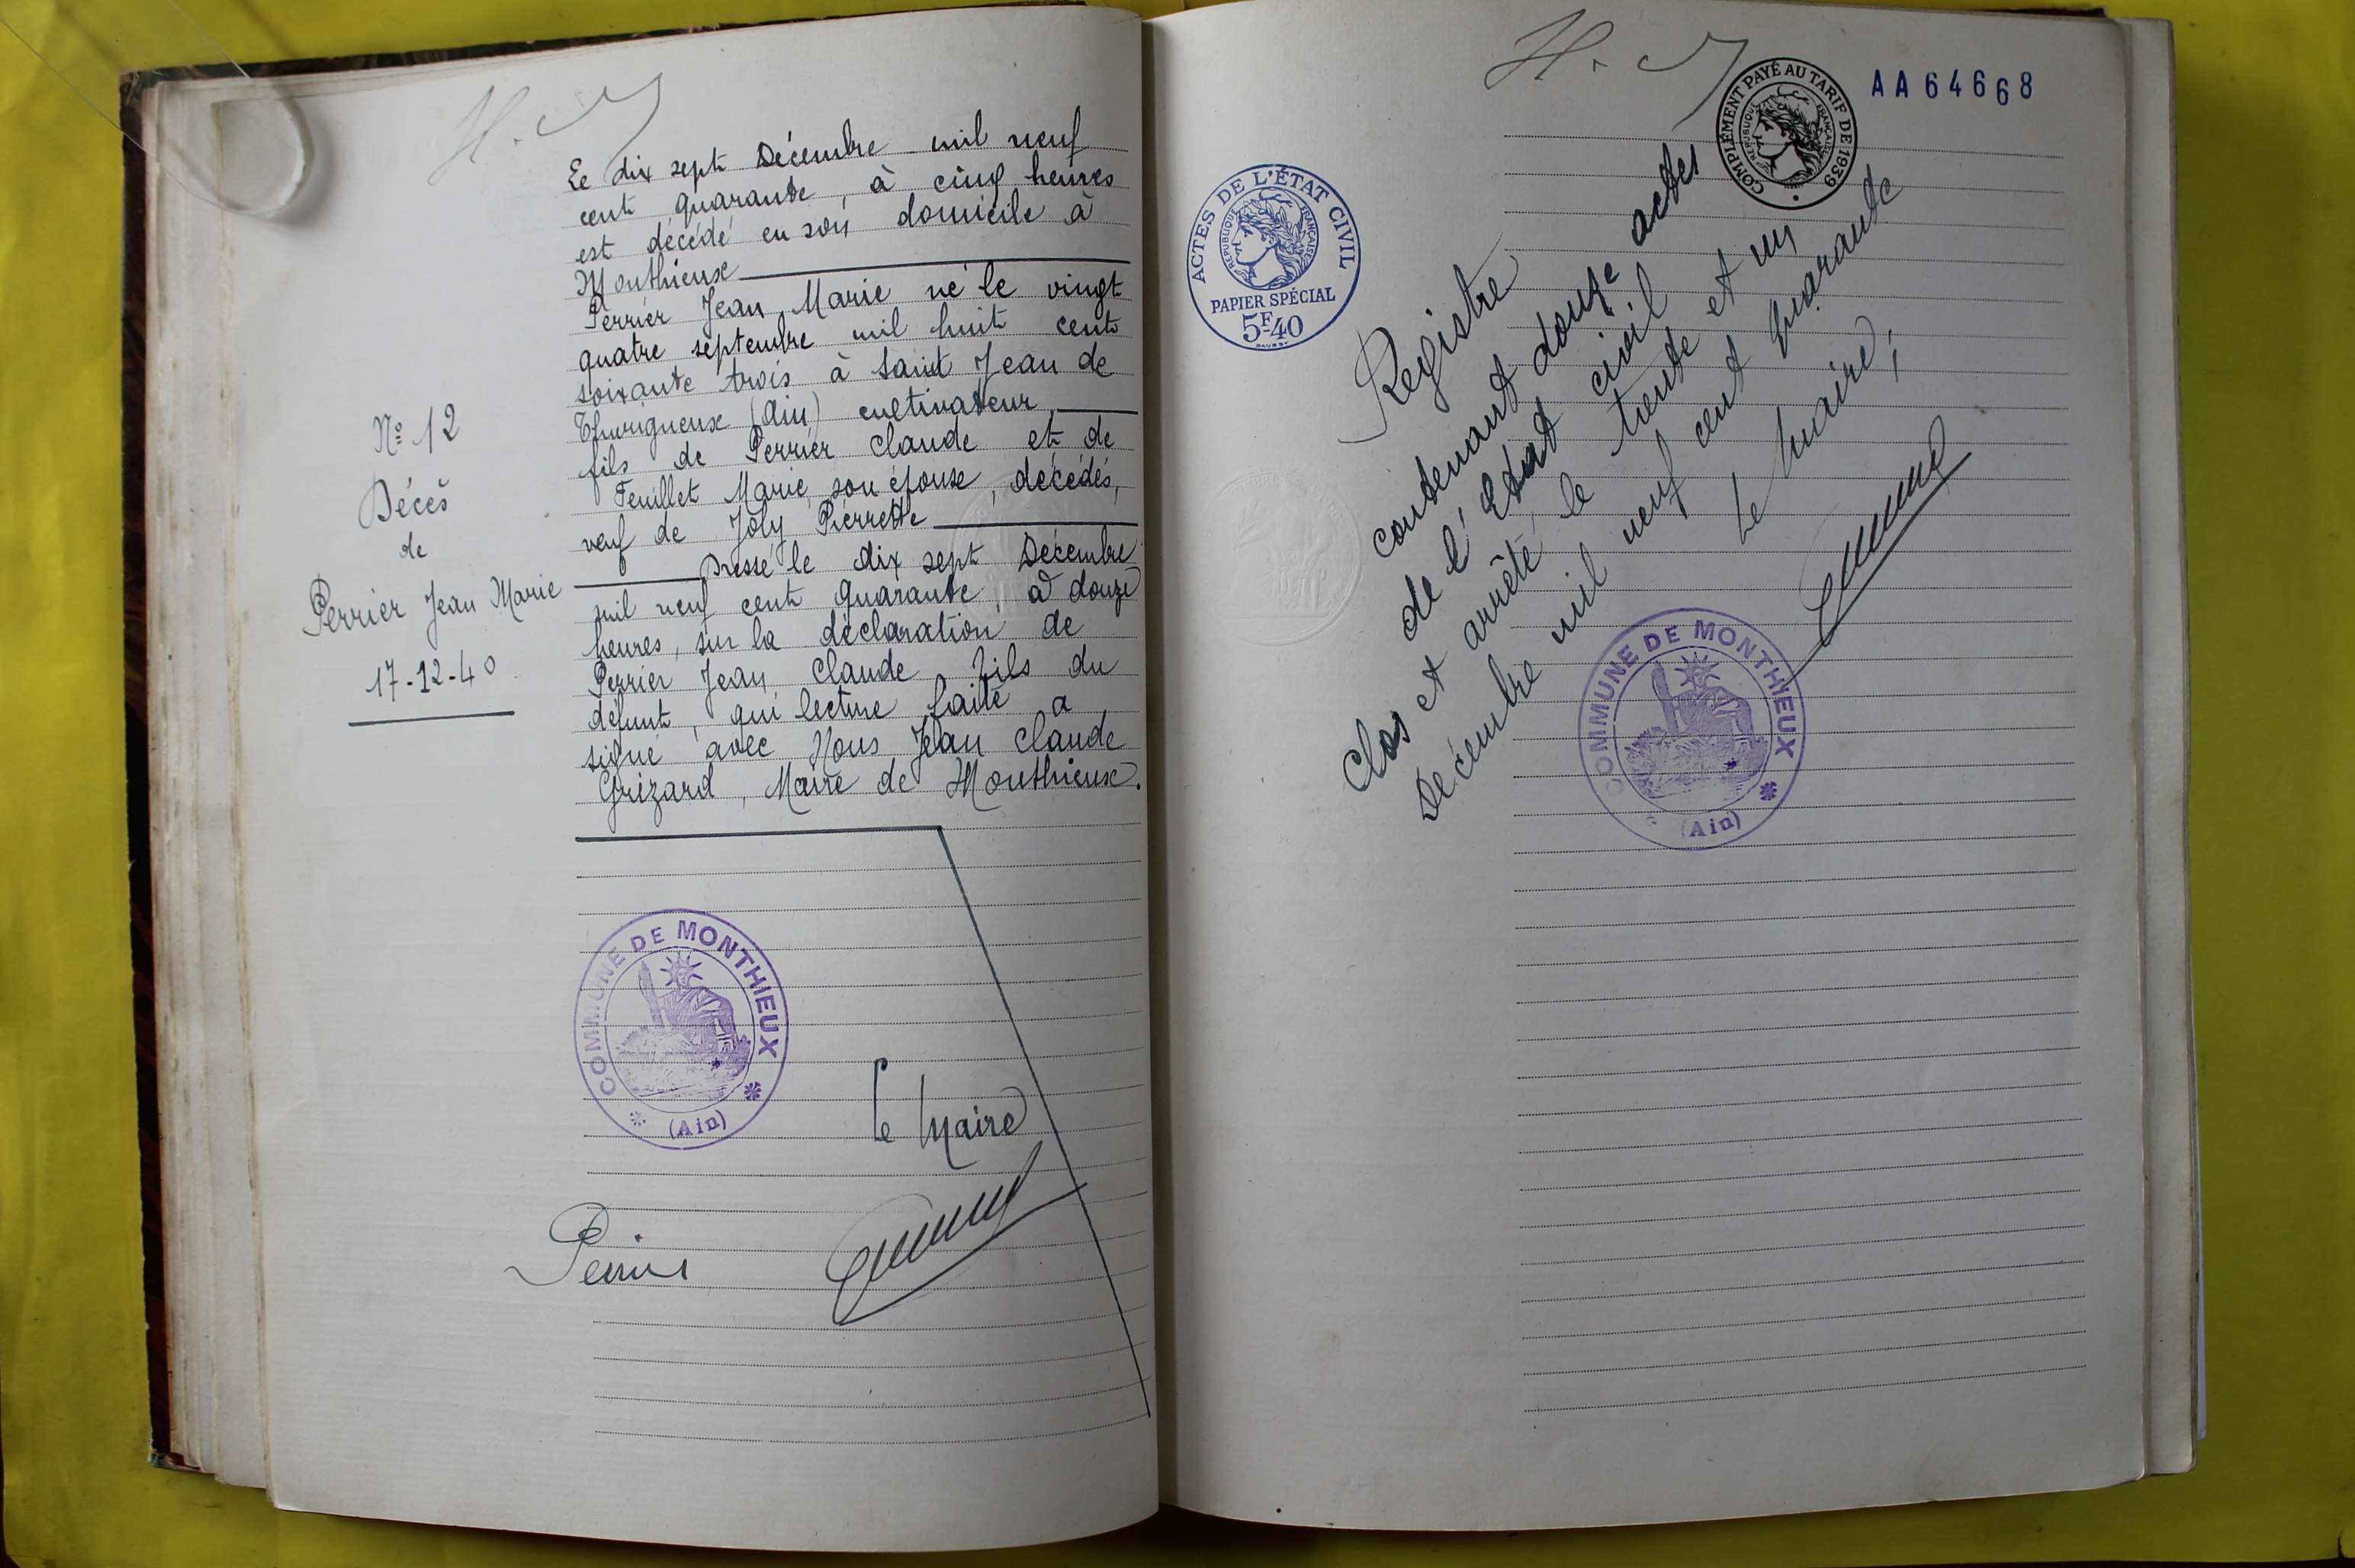 N° 12
Décès
de
Perrier Jean Marie
17-12-40
Le dix sept Décembre mil neuf
cent quarante, à cinq heures
est décédé en son domicile à
Monthieux
Perrier Jean Marie né le vingt
quatre septembre mil huit cent
soixante trois à saint Jean de
Thurigneux (Ain) cultivateur
fils de Perrier Claude et de
Feuillet Marie, son épouse, décédés,
veuf de Joly Pierrette
Dressé le dix sept Décembre
mil neuf cent quarante, à douze
heures, sur la déclaration de
Perrier Jean Claude fils du
défunt, qui lecture faite a
signé avec Nous Jean Claude
Grizard, Maire de Monthieux.
COMMUNE DE MONTHIEUX
(Ain)
Le Maire
Perrier
COMPLÉMENT PAYÉ AU TARIF DE 1939
REPUBLIQUE FRANÇAISE
AA64668
ACTES DE L'ÉTAT CIVIL
REPUBLIQUE FRANÇAISE
PAPIER SPÉCIAL
5F-40
Registre
contenant douze actes
de l'Etat civil
Clos et arrêté le trente et un
Décembre mil neuf cent quarante
Le Maire,
COMMUNE DE MONTHIEUX
(Ain)